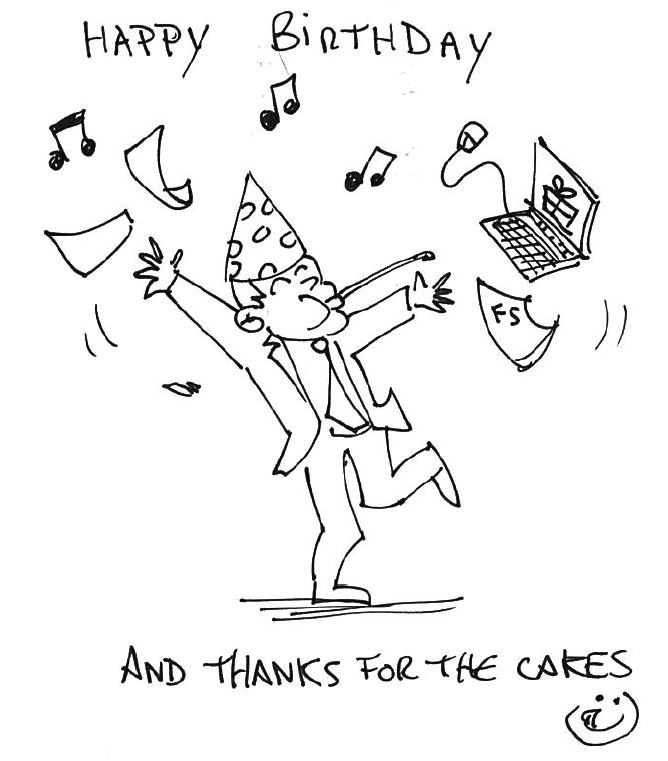 HAPPY BiRTHDAY
FS
AND THANKS FOR THE CAKES